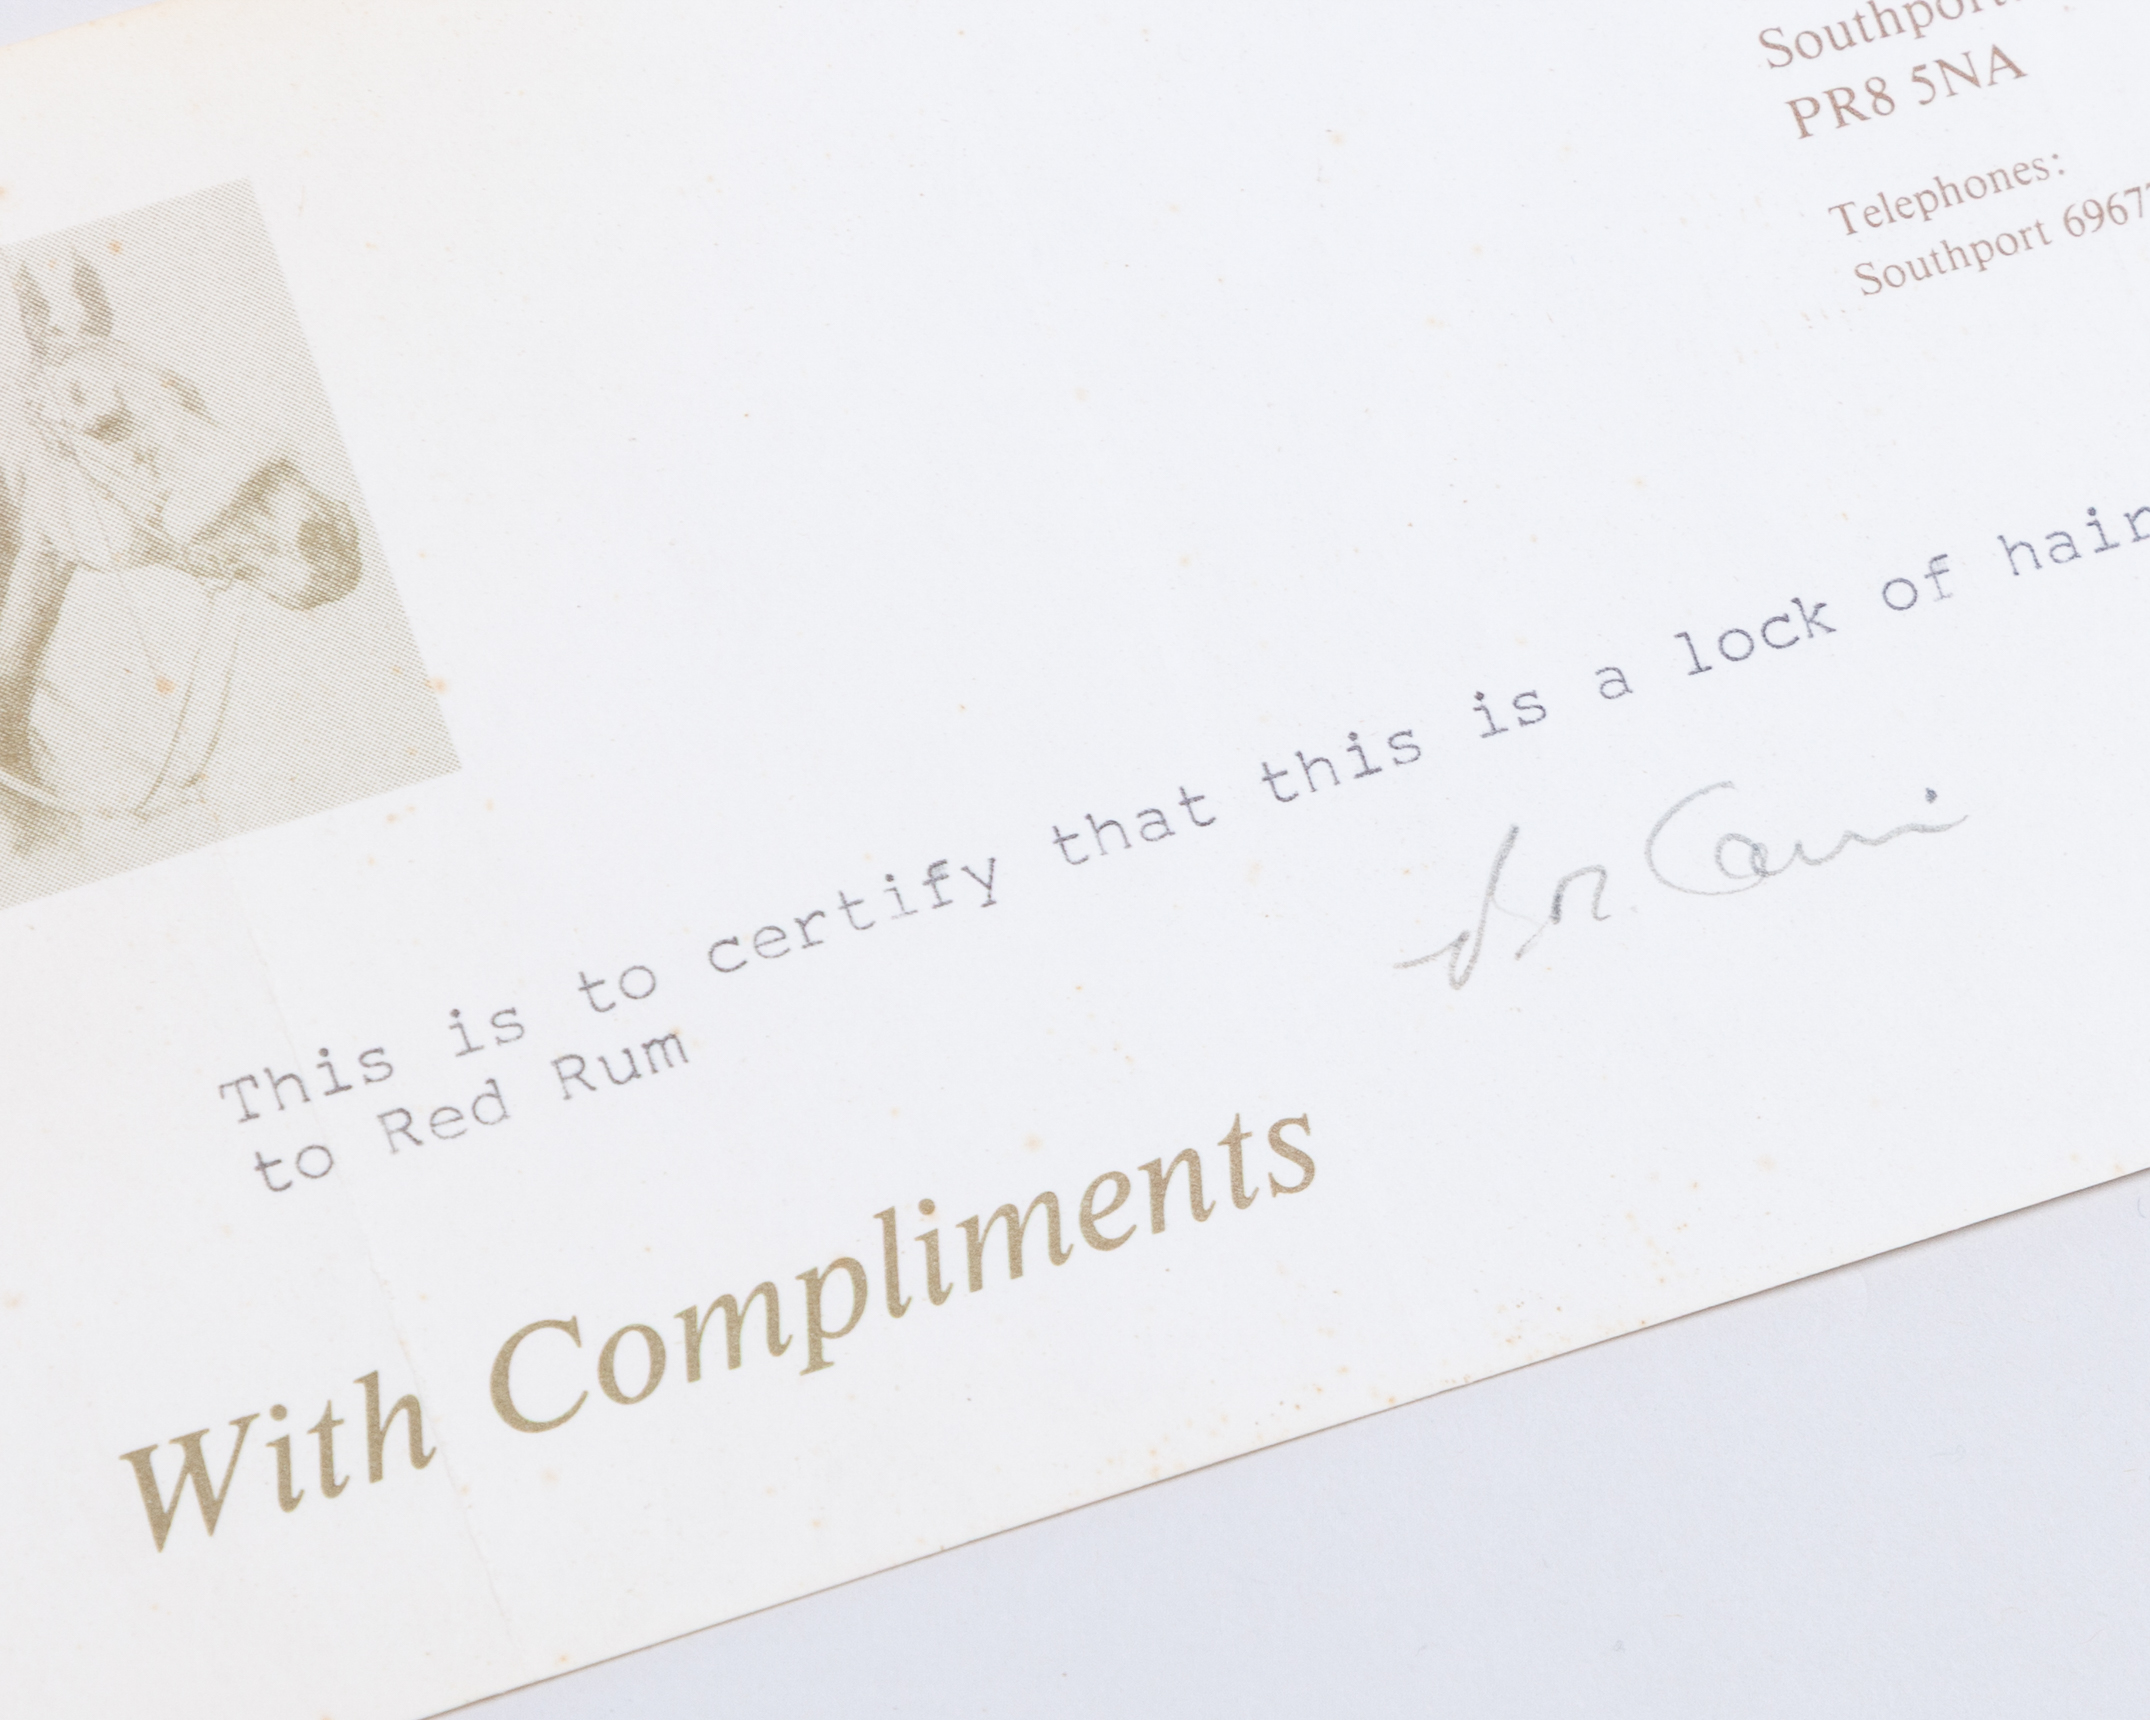 Southport
PR8 5NA
Telephones:
Southport 6967
This is to certify that this is a lock of hair
to Red Rum
With Compliments